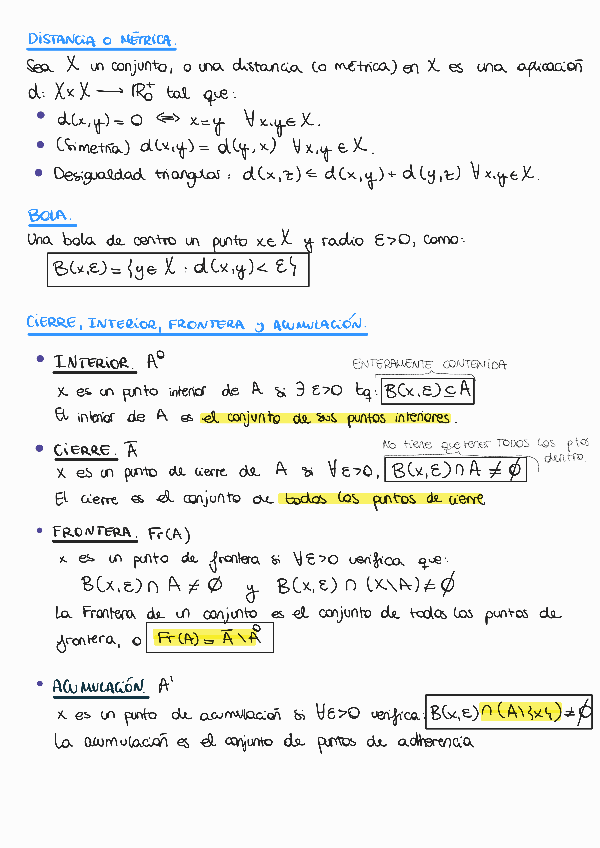 DISTANCIA O MÉTRICA.
Sea X un conjunto, o una distancia (o métrica) en X es una aplicación
d: X x X → R₀⁺ tal que:
• d(x,y) = 0 ⟺ x=y ∀x,y∈X.
• (Simetría) d(x,y) = d(y,x) ∀x,y∈X.
• Desigualdad triangular: d(x,z) ≤ d(x,y) + d(y,z) ∀x,y∈X.
BOLA.
Una bola de centro un punto x∈X y radio ε>0, como:
B(x,ε) = {y∈X : d(x,y) < ε}
CIERRE, INTERIOR, FRONTERA y ACUMULACIÓN.
• INTERIOR. A⁰
ENTERAMENTE CONTENIDA
x es un punto interior de A si ∃ ε>0 tq: B(x,ε) ⊆ A
El interior de A es el conjunto de sus puntos interiores.
• CIERRE. A̅
No tiene que tener TODOS los ptos
dentro
x es un punto de cierre de A si ∀ε>0, B(x,ε) ∩ A ≠ ∅
El cierre es el conjunto de todos los puntos de cierre
• FRONTERA. Fr(A)
x es un punto de frontera si ∀ε>0 verifica que:
B(x,ε) ∩ A ≠ ∅ y B(x,ε) ∩ (X\A) ≠ ∅
La Frontera de un conjunto es el conjunto de todos los puntos de
frontera, o Fr(A) = A̅ \ A⁰
• ACUMULACIÓN. A'
x es un punto de acumulación si ∀ε>0 verifica: B(x,ε) ∩ (A\{x}) ≠ ∅
La acumulación es el conjunto de puntos de adherencia